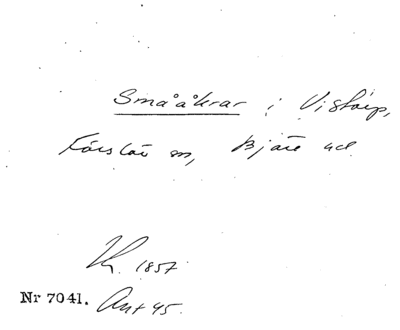 Smååkrar i Vistorp,
Förslöv sn, Bjäre hd
Kh. 1857
Nr 7041. Ant 45.